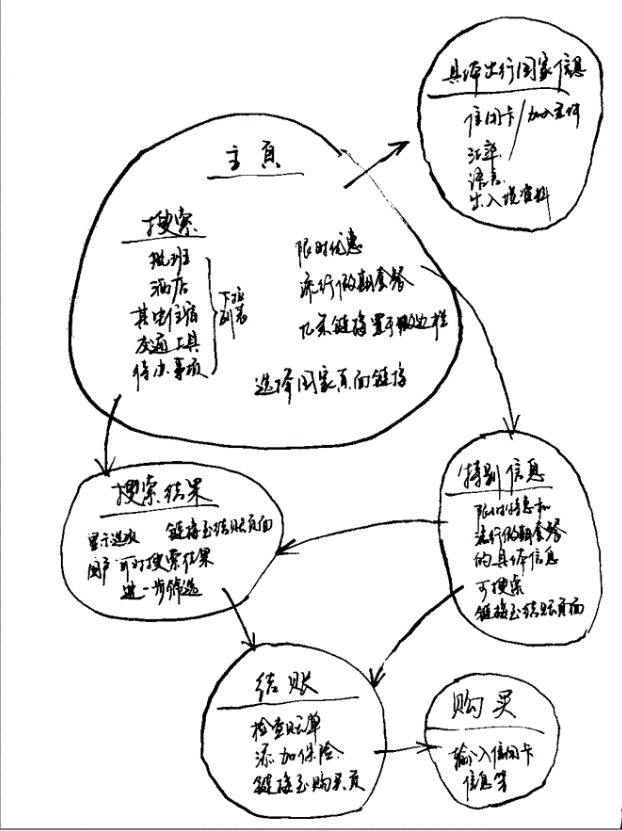 具体出行国家信息
信用卡/加入主件
汇率
语言
出入境资料
主页
搜索
航班
酒店
其它住宿
交通工具
待办事项
下拉
列表
限时优惠
流行假期套餐
链接置于侧边栏
选择国家页面链接
搜索结果
显示选项 链接至结账页面
用户可对搜索结果
进一步筛选
特别信息
限时特惠和
流行假期套餐
的具体信息
可搜索
链接至结账页面
结账
检查账单
添加保险
链接至购买页
购买
输入信用卡
信息等